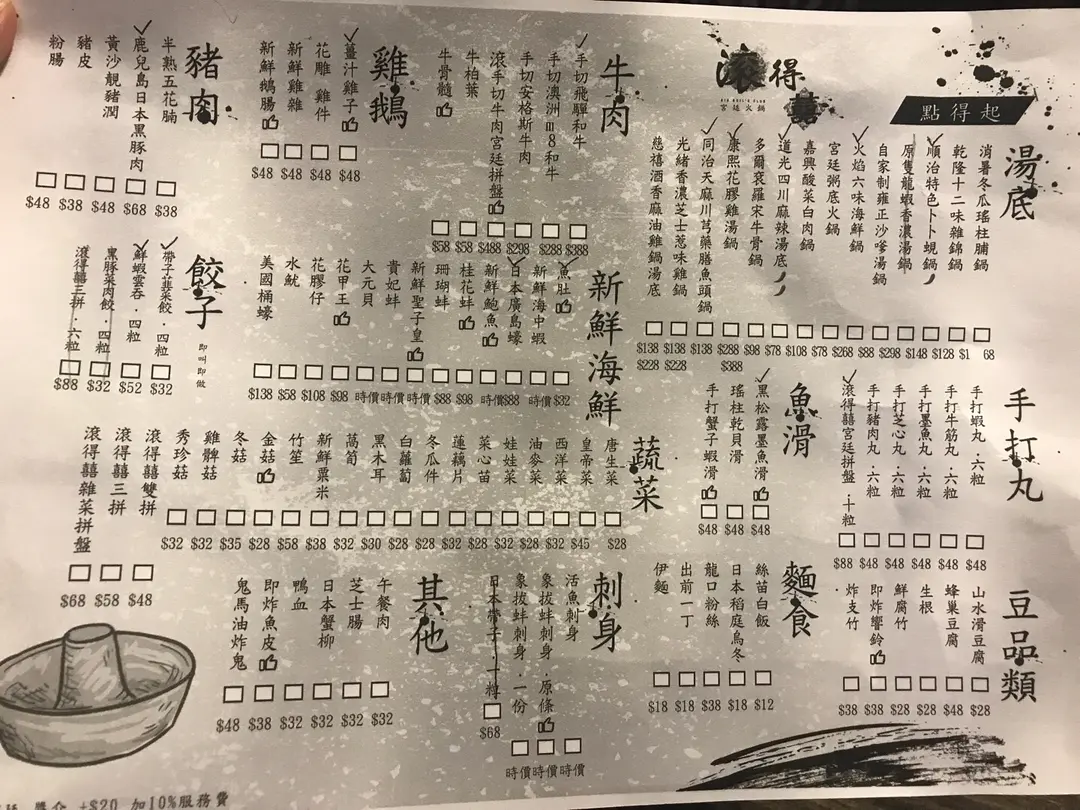 滾得囍
BIG BOIL'S CLUB
宮廷火鍋
點得起
湯底
消暑冬瓜瑤柱脯鍋 $168
乾隆十二味雜錦鍋 $128
順治特色卜卜蜆鍋 $148
原隻龍蝦香濃湯鍋 $298
自家制雍正沙嗲湯鍋 $88
火焰六味海鮮鍋 $268
宮廷粥底火鍋 $78
嘉興酸菜白肉鍋 $108
道光四川麻辣湯底 $78
多爾袞羅宋牛骨鍋 $98
康熙花膠雞湯鍋 $288 $388
同治天麻川芎藥膳魚頭鍋 $138
光緒香濃芝士蔥味雞鍋 $138 $228
慈禧酒香麻油雞鍋湯底 $138 $228
牛肉
手切飛驒和牛 $388
手切澳洲m8和牛 $288
手切安格斯牛肉 $298
滾手切牛肉宮廷拼盤 $488
牛柏葉 $58
牛骨髓 $58
雞鵝
薑汁雞子 $48
花雕雞件 $48
新鮮雞雜 $48
新鮮鵝腸 $48
豬肉
半熟五花腩 $38
鹿兒島日本黑豚肉 $68
黃沙靚豬潤 $48
豬皮 $38
粉腸 $48
新鮮海鮮
魚肚 $32
新鮮海中蝦 時價
日本廣島蠔 $88
新鮮鮑魚 時價
桂花蚌 $98
珊瑚蚌 $88
新鮮聖子皇 時價
貴妃蚌 時價
大元貝 時價
花甲王 $98
花膠仔 $108
水魷 $58
美國桶蠔 $138
餃子
即叫即做
帶子韮菜餃．四粒 $32
鮮蝦雲吞．四粒 $52
黑豚菜肉餃．四粒 $32
滾得囍三拼．六粒 $88
手打丸
手打蝦丸．六粒 $48
手打牛筋丸．六粒 $48
手打墨魚丸．六粒 $48
手打芝心丸．六粒 $48
手打豬肉丸．六粒 $48
滾得囍宮廷拼盤．十粒 $88
魚滑
黑松露墨魚滑 $48
瑤柱乾貝滑 $48
手打蟹子蝦滑 $48
蔬菜
唐生菜 $28
皇帝菜 $45
西洋菜 $32
油麥菜 $28
娃娃菜 $32
菜心苗 $28
蓮藕片 $32
冬瓜件 $28
白蘿蔔 $28
黑木耳 $30
萵筍 $32
新鮮粟米 $38
竹笙 $58
金菇 $28
冬菇 $35
雞髀菇 $32
秀珍菇 $32
滾得囍雙拼 $48
滾得囍三拼 $58
滾得囍雜菜拼盤 $68
豆品類
山水滑豆腐 $28
蜂巢豆腐 $48
生根 $28
鮮腐竹 $28
即炸響鈴 $38
炸支竹 $38
麵食
絲苗白飯 $12
日本稻庭烏冬 $18
龍口粉絲 $38
出前一丁 $18
伊麵 $18
刺身
活魚刺身 時價
象拔蚌刺身．原條 時價
象拔蚌刺身．一份 時價
日本帶子．一罇 $68
其他
午餐肉 $32
芝士腸 $32
日本蟹柳 $32
鴨血 $32
即炸魚皮 $38
鬼馬油炸鬼 $48
+$20 加10%服務費